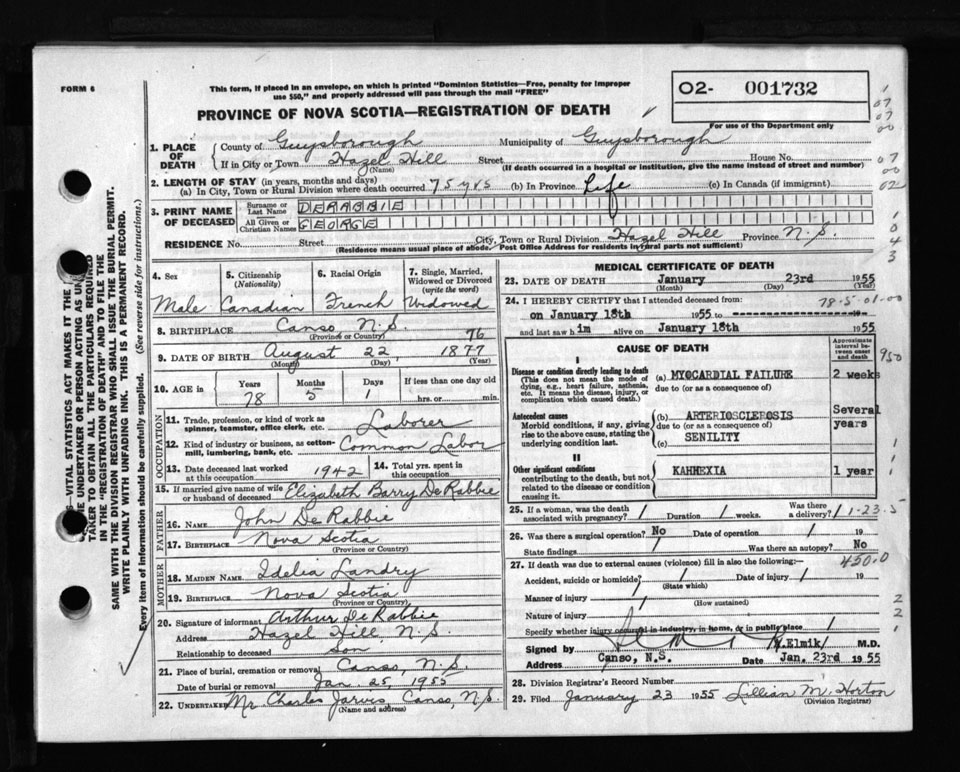 FORM 6
This form, if placed in an envelope, on which is printed "Dominion Statistics—Free, penalty for improper
use $50," and properly addressed will pass through the mail "FREE"
PROVINCE OF NOVA SCOTIA—REGISTRATION OF DEATH
O2- 001732
For use of the Department only
1. PLACE OF DEATH
County of Guysborough Municipality of Guysborough
If in City or Town Hazel Hill Street House No.
(Name) (If death occurred in a hospital or institution, give the name instead of street and number)
2. LENGTH OF STAY (in years, months and days)
(a) In City, Town or Rural Division where death occurred 75 yrs (b) In Province Life (c) In Canada (if immigrant)
3. PRINT NAME OF DECEASED
Surname or Last Name DERABBIE
All Given or Christian Names GEORGE
RESIDENCE No. Street City, Town or Rural Division Hazel Hill Province N.S.
(Residence means usual place of abode. Post Office Address for residents in rural parts not sufficient)
4. Sex
Male
5. Citizenship
(Nationality)
Canadian
6. Racial Origin
French
7. Single, Married, Widowed or Divorced
(write the word)
Widowed
8. BIRTHPLACE Canso N.S.
(Province or Country)
76
9. DATE OF BIRTH August 22, 1877
(Month) (Day) (Year)
10. AGE in Years Months Days If less than one day old
78 5 1 hrs. or min.
OCCUPATION
11. Trade, profession, or kind of work as
spinner, teamster, office clerk, etc. Laborer
12. Kind of industry or business, as cotton-
mill, lumbering, bank, etc. Common Labor
13. Date deceased last worked
at this occupation 1942
14. Total yrs. spent in
this occupation
15. If married give name of wife
or husband of deceased Elizabeth Barry DeRabbie
FATHER
16. NAME John DeRabbie
17. BIRTHPLACE Nova Scotia
(Province or Country)
MOTHER
18. MAIDEN NAME Idelia Landry
19. BIRTHPLACE Nova Scotia
(Province or Country)
20. Signature of informant Arthur DeRabbie
Address Hazel Hill, N.S.
Relationship to deceased Son
21. Place of burial, cremation or removal Canso, N.S.
Date of burial or removal Jan. 25, 1955
22. UNDERTAKER Mr Charles Jarvis Canso, N.S.
(Name and address)
MEDICAL CERTIFICATE OF DEATH
23. DATE OF DEATH January 23rd 1955
(Month) (Day) (Year)
24. I HEREBY CERTIFY that I attended deceased from:
78-5-01-00
on January 18th 1955 to 19
and last saw him alive on January 18th 1955
CAUSE OF DEATH
Approximate interval between onset and death
950
I
Disease or condition directly leading to death
(This does not mean the mode of
dying, e.g., heart failure, asthenia,
etc. It means the disease, injury, or
complication which caused death.)
(a) MYOCARDIAL FAILURE 2 weeks
due to (or as a consequence of)
Antecedent causes
Morbid conditions, if any, giving
rise to the above cause, stating the
underlying condition last.
(b) ARTERIOSCLEROSIS Several years
due to (or as a consequence of)
(c) SENILITY
II
Other significant conditions
contributing to the death, but not
related to the disease or condition
causing it.
KAHHEXIA 1 year
25. If a woman, was the death
associated with pregnancy? / Duration / weeks. Was there
a delivery? / 1-23-5
26. Was there a surgical operation? No Date of operation / 19
State findings / Was there an autopsy? No
27. If death was due to external causes (violence) fill in also the following:— 450.0
Accident, suicide or homicide? / Date of injury / 19
(State which)
Manner of injury /
(How sustained)
Nature of injury /
Specify whether injury occurred in industry, in home, or in public place /
Signed by Elmik/ M.D.
Address Canso, N.S. Date Jan. 23rd 1955
28. Division Registrar's Record Number
29. Filed January 23 1955 Lillian M. Horton
(Division Registrar)
VITAL STATISTICS ACT MAKES IT THE
UNDERTAKER OR PERSON ACTING AS
TAKER TO OBTAIN ALL THE PARTICULARS REQUIRED
IN THE "REGISTRATION OF DEATH" AND TO FILE THE
SAME WITH THE DIVISION REGISTRAR WHO SHALL ISSUE THE BURIAL PERMIT.
WRITE PLAINLY WITH UNFADING INK. THIS IS A PERMANENT RECORD.
Every item of information should be carefully supplied. (See reverse side for instructions.)
1
07
07
00
07
00
02
0
4
3
1
1
2
2
1